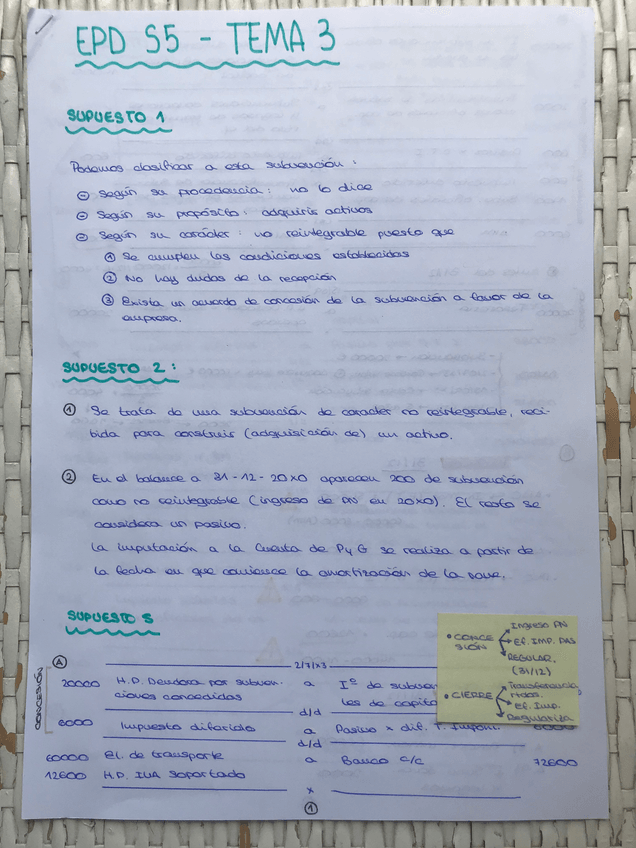 EPD S5 - TEMA 3
SUPUESTO 1
Podemos clasificar a esta subvención:
- Según su procedencia: no lo dice
- Según su propósito: adquirir activos
- Según su carácter: no reintegrable puesto que
① Se cumplen las condiciones establecidas
② No hay dudas de la recepción
③ Exista un acuerdo de concesión de la subvención a favor de la
empresa.
SUPUESTO 2:
① Se trata de una subvención de carácter no reintegrable, reci-
bida para construir (adquisición de) un activo.
② En el balance a 31-12-20X0 aparecen 200 de subvención
como no reintegrable (ingreso de PN en 20X0). El resto se
considera un pasivo.
La imputación a la Cuenta de PyG se realiza a partir de
la fecha en que comience la amortización de la nave.
SUPUESTO 5
• CONCE
SIÓN
Ingreso PN
Ef. IMP. PAS
REGULAR.
(31/12)
• CIERRE
Transferencia
rtdos.
Ef. Imp.
Regulariza
A
CONCESIÓN
2/7/X3
20000 H.P. Deudora por subven- a Iº de subven
ciones concedidas les de capita
d/d
6000 Impuesto diferido a Pasivo x dif. T. Imponi. 6000
d/d
60000 El. de transporte a Banco c/c 72600
12600 H.P. IVA Soportado
x
①